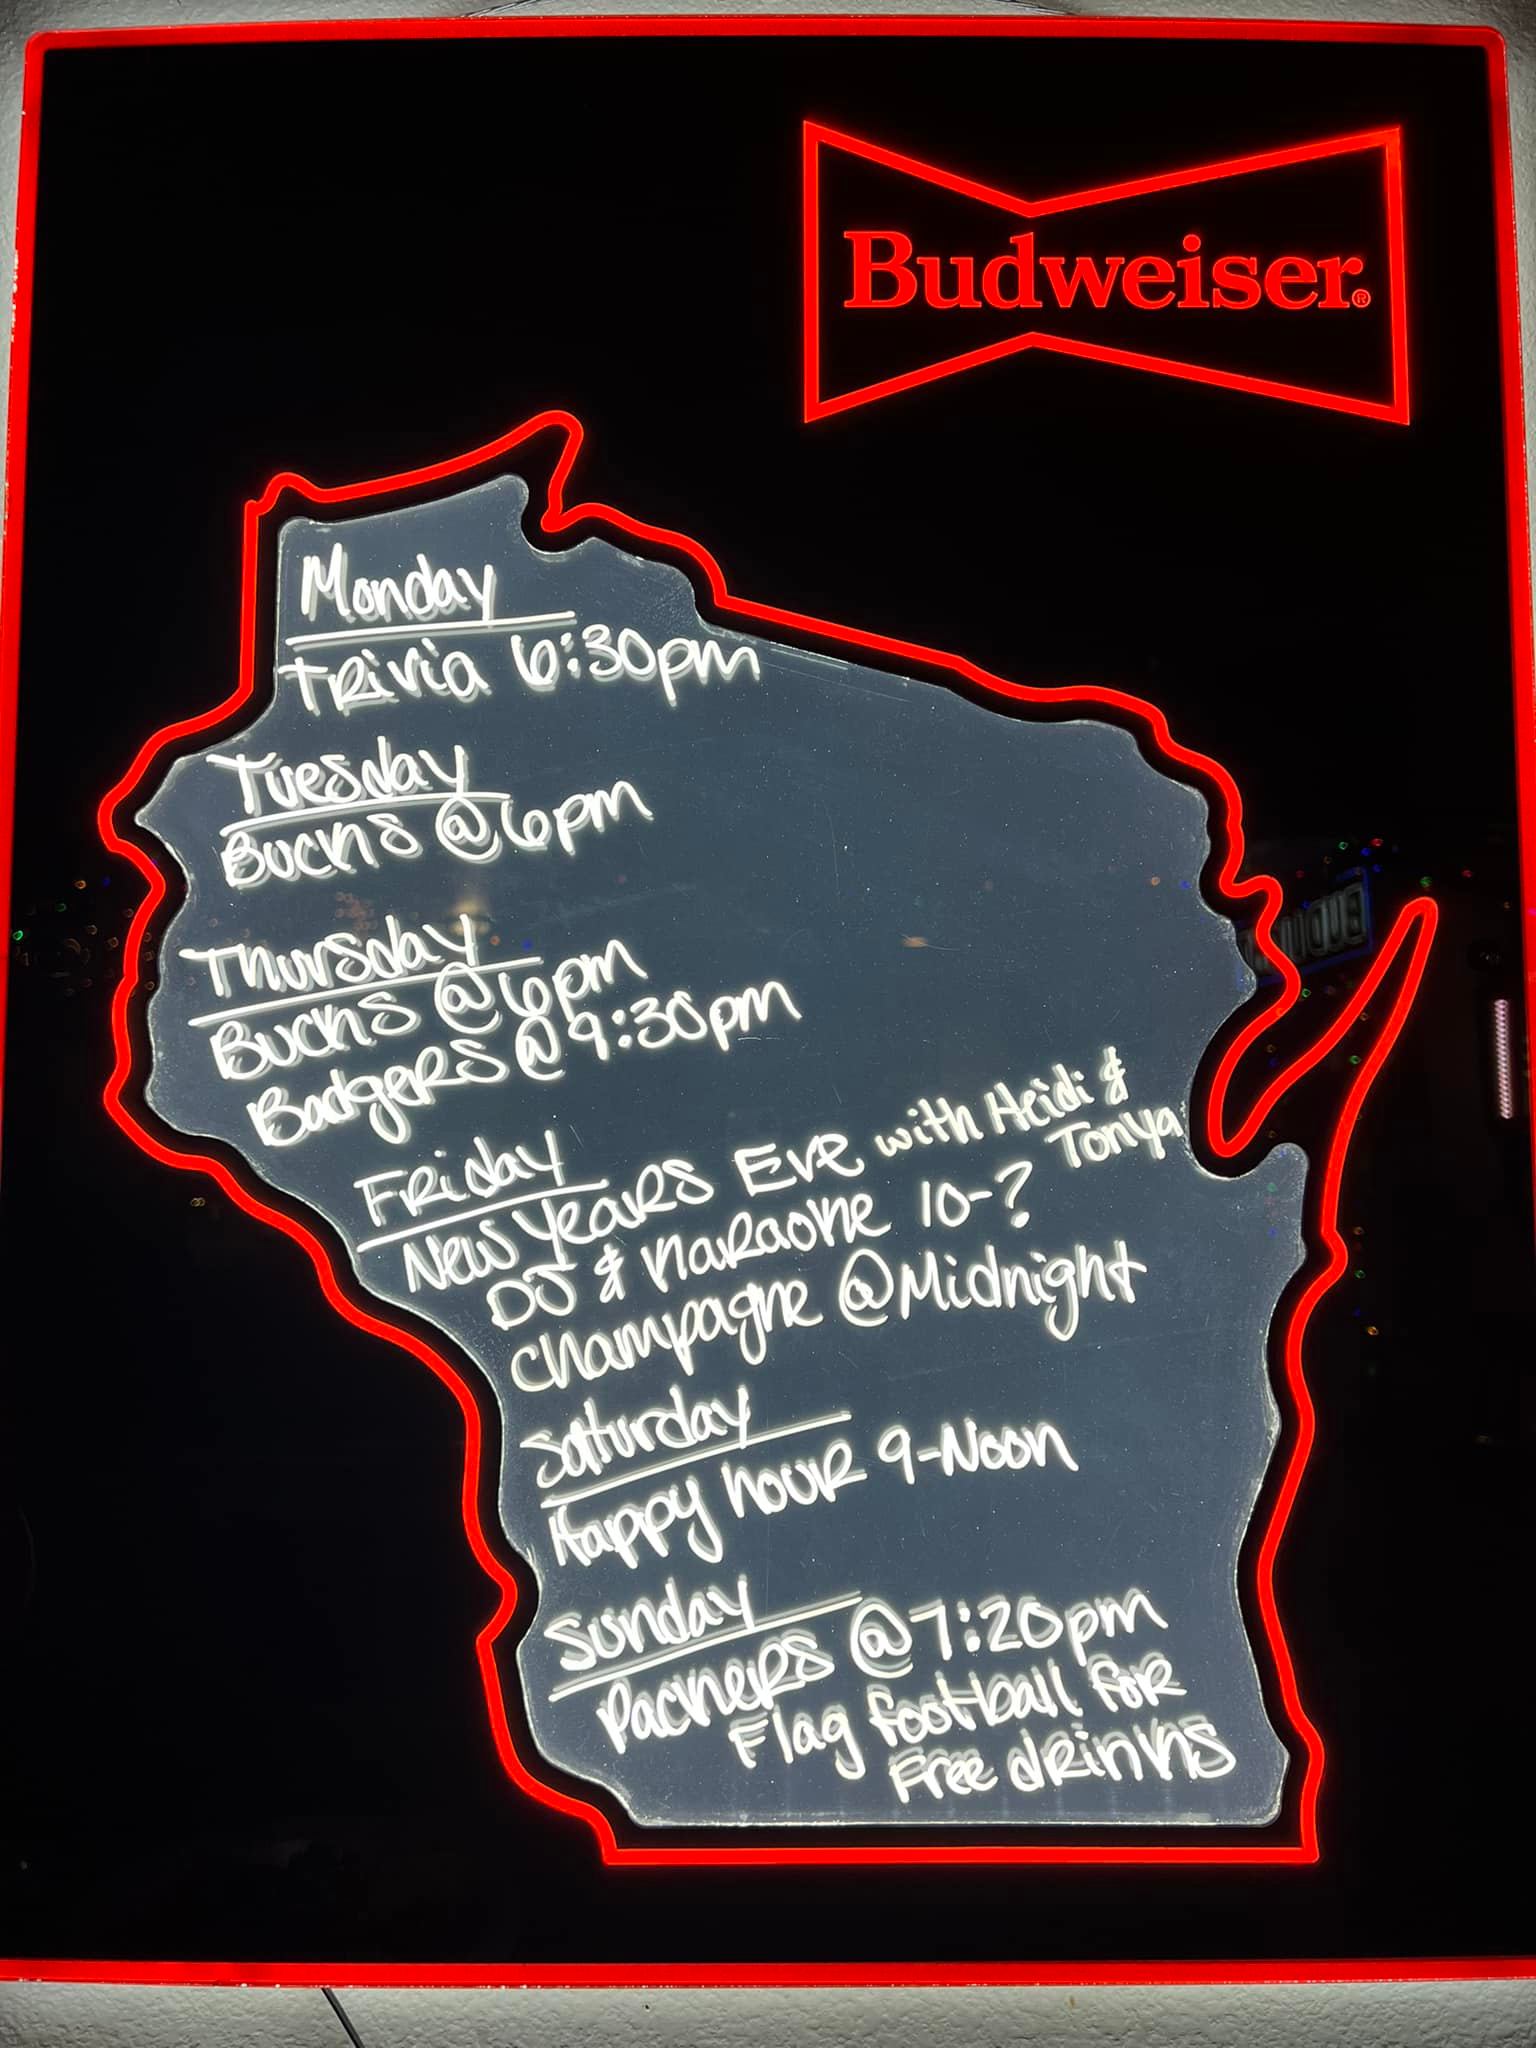 Budweiser®
Monday
Trivia 6:30pm
Tuesday
Bucks @ 6pm
Thursday
Bucks @ 6pm
Badgers @ 9:30pm
Friday
New Years Eve with Heidi & Tonya
DJ & Karaoke 10-?
Champagne @ Midnight
Saturday
Happy hour 9-Noon
Sunday
Packers @ 7:20pm
Flag football for
Free drinks